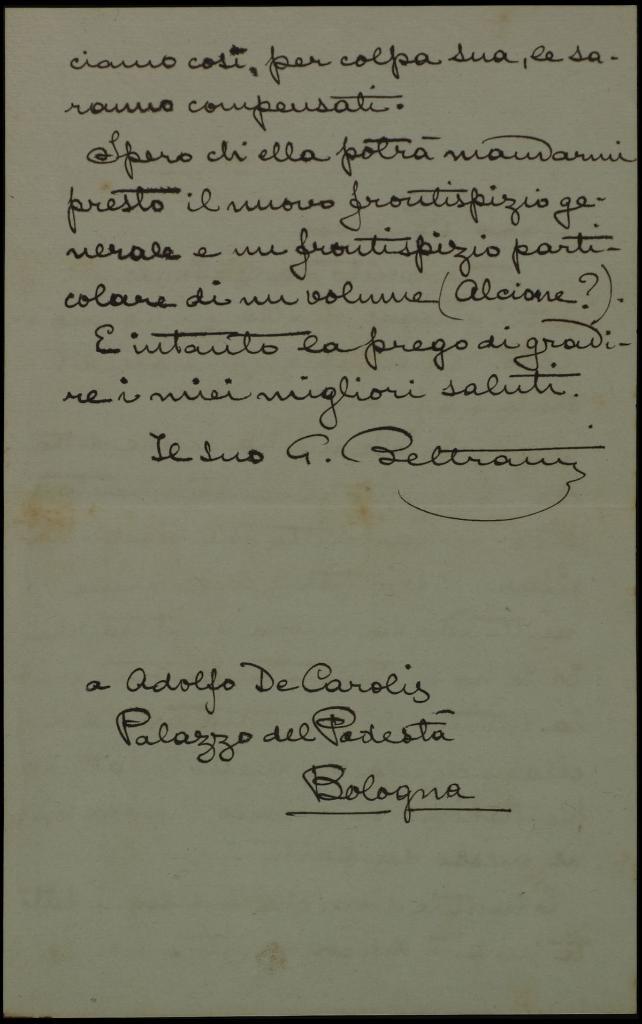 ciamo così, per colpa sua, le sa-
ranno compensati.
Spero ch'ella potrà mandarmi
presto il nuovo frontispizio ge-
nerale e un frontispizio parti-
colare di un volume (Alcione?).
E intanto la prego di gradi-
re i miei migliori saluti.
Il suo G. Beltrami
a Adolfo De Carolis
Palazzo del Podestà
Bologna